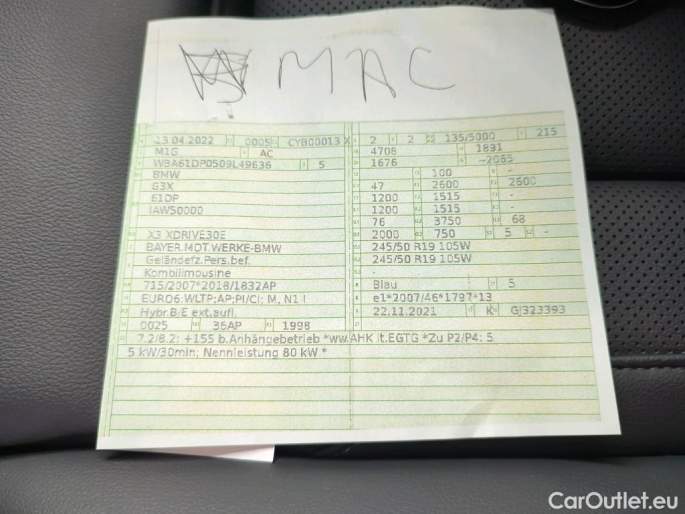 MAC
13.04.2022 0005 CYB00013 X
M1G AC
WBA61DP0509L49636 5
BMW
G3X
61DP
IAW50000
X3 XDRIVE30E
BAYER.MOT.WERKE-BMW
Geländefz.Pers.bef.
Kombilimousine
715/2007*2018/1832AP
EURO6;WLTP;AP;PI/CI; M, N1 I
Hybr.B/E ext.aufl.
0025 36AP 1998
2 2 135/5000 215
4708 1891
1676
100 -
47 2600 2600
1200 1515 -
1200 1515 -
76 3750 68
2000 750 5 -
245/50 R19 105W
245/50 R19 105W
-
Blau 5
e1*2007/46*1797*13
22.11.2021 K GJ323393
7.2/8.2: +155 b.Anhängebetrieb *ww.AHK lt.EGTG *Zu P2/P4: 5
5 kW/30min; Nennleistung 80 kW *
CarOutlet.eu